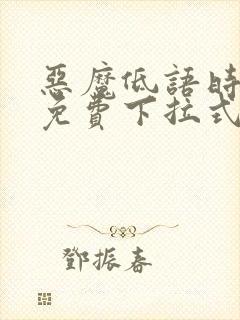 惡魔低語時
免費下拉式
鄧振春